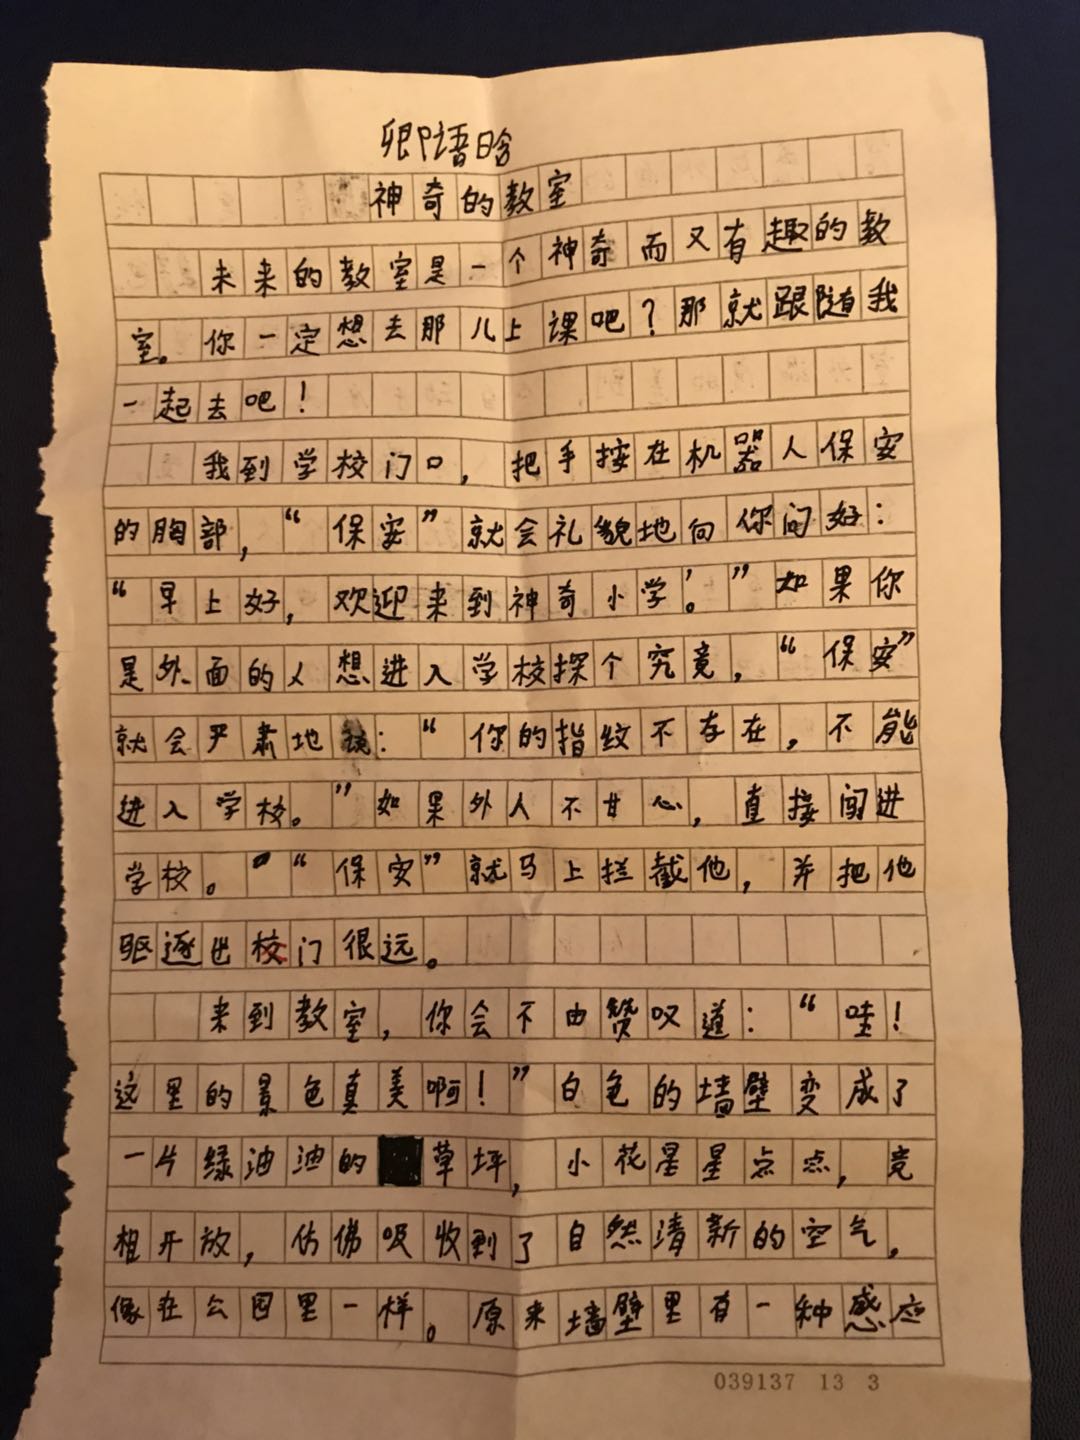 卿语晗
神奇的教室
未来的教室是一个神奇而又有趣的教
室。你一定想去那儿上课吧？那就跟随我
一起去吧！
我到学校门口，把手按在机器人保安
的胸部，“保安”就会礼貌地向你问好：
“早上好，欢迎来到神奇小学！”如果你
是外面的人想进入学校探个究竟，“保安”
就会严肃地说：“你的指纹不存在，不能
进入学校。”如果外人不甘心，直接闯进
学校。“保安”就马上拦截他，并把他
驱逐出校门很远。
来到教室，你会不由赞叹道：“哇！
这里的景色真美啊！”白色的墙壁变成了
一片绿油油的草坪，小花星星点点，竞
相开放，仿佛吸收到了自然清新的空气，
像在公园里一样。原来墙壁里有一种感应
039137 13 3